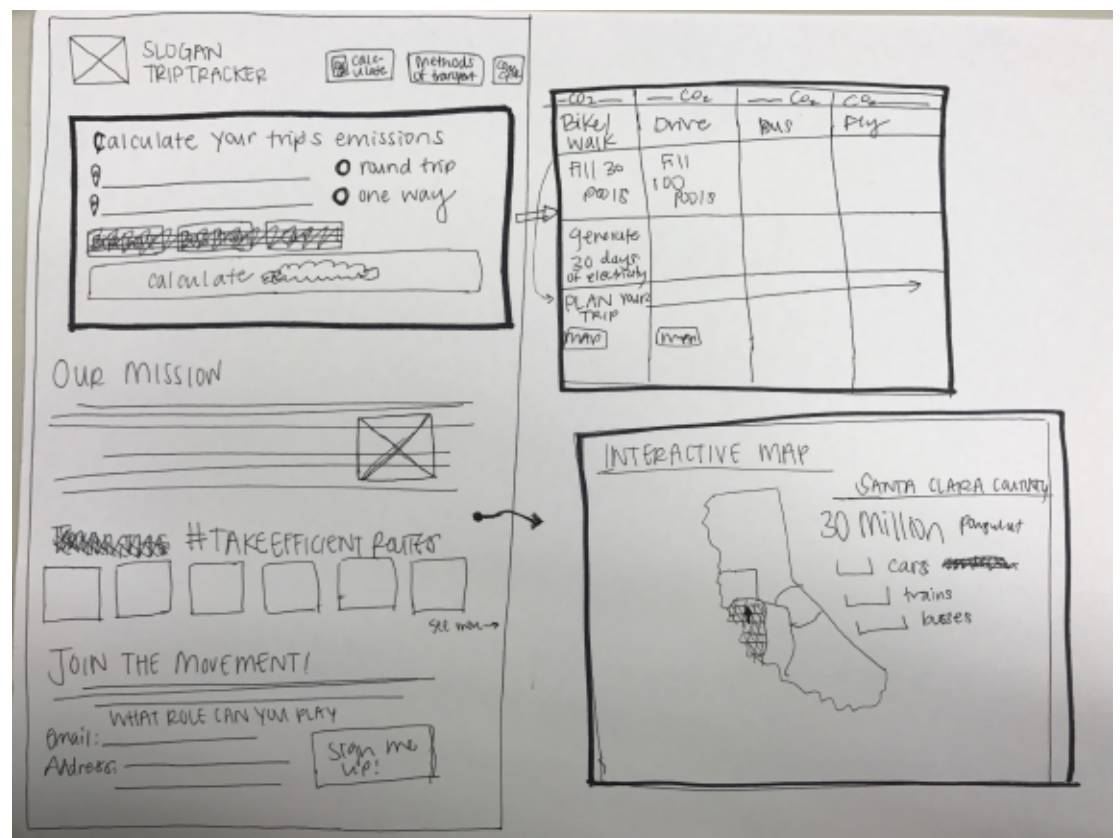 SLOGAN
TRIPTRACKER
calc-
ulate
Methods
of transport
Calculate your trip's emissions
round trip
one way
calculate
OUR MISSION
#TAKEEFFICIENT ROUTES
See more→
JOIN THE MOVEMENT!
WHAT ROLE CAN YOU PLAY
Email:
Address:
Sign me
up!
CO2 CO2 CO2 CO2
Bike/
Walk
Drive
Bus
Fly
Fill 30
pools
Fill
100
pools
generate
30 days
of electricity
PLAN YOUR
TRIP
MAP
MAP
INTERACTIVE MAP
SANTA CLARA COUNTY
30 Million
cars
trains
busses